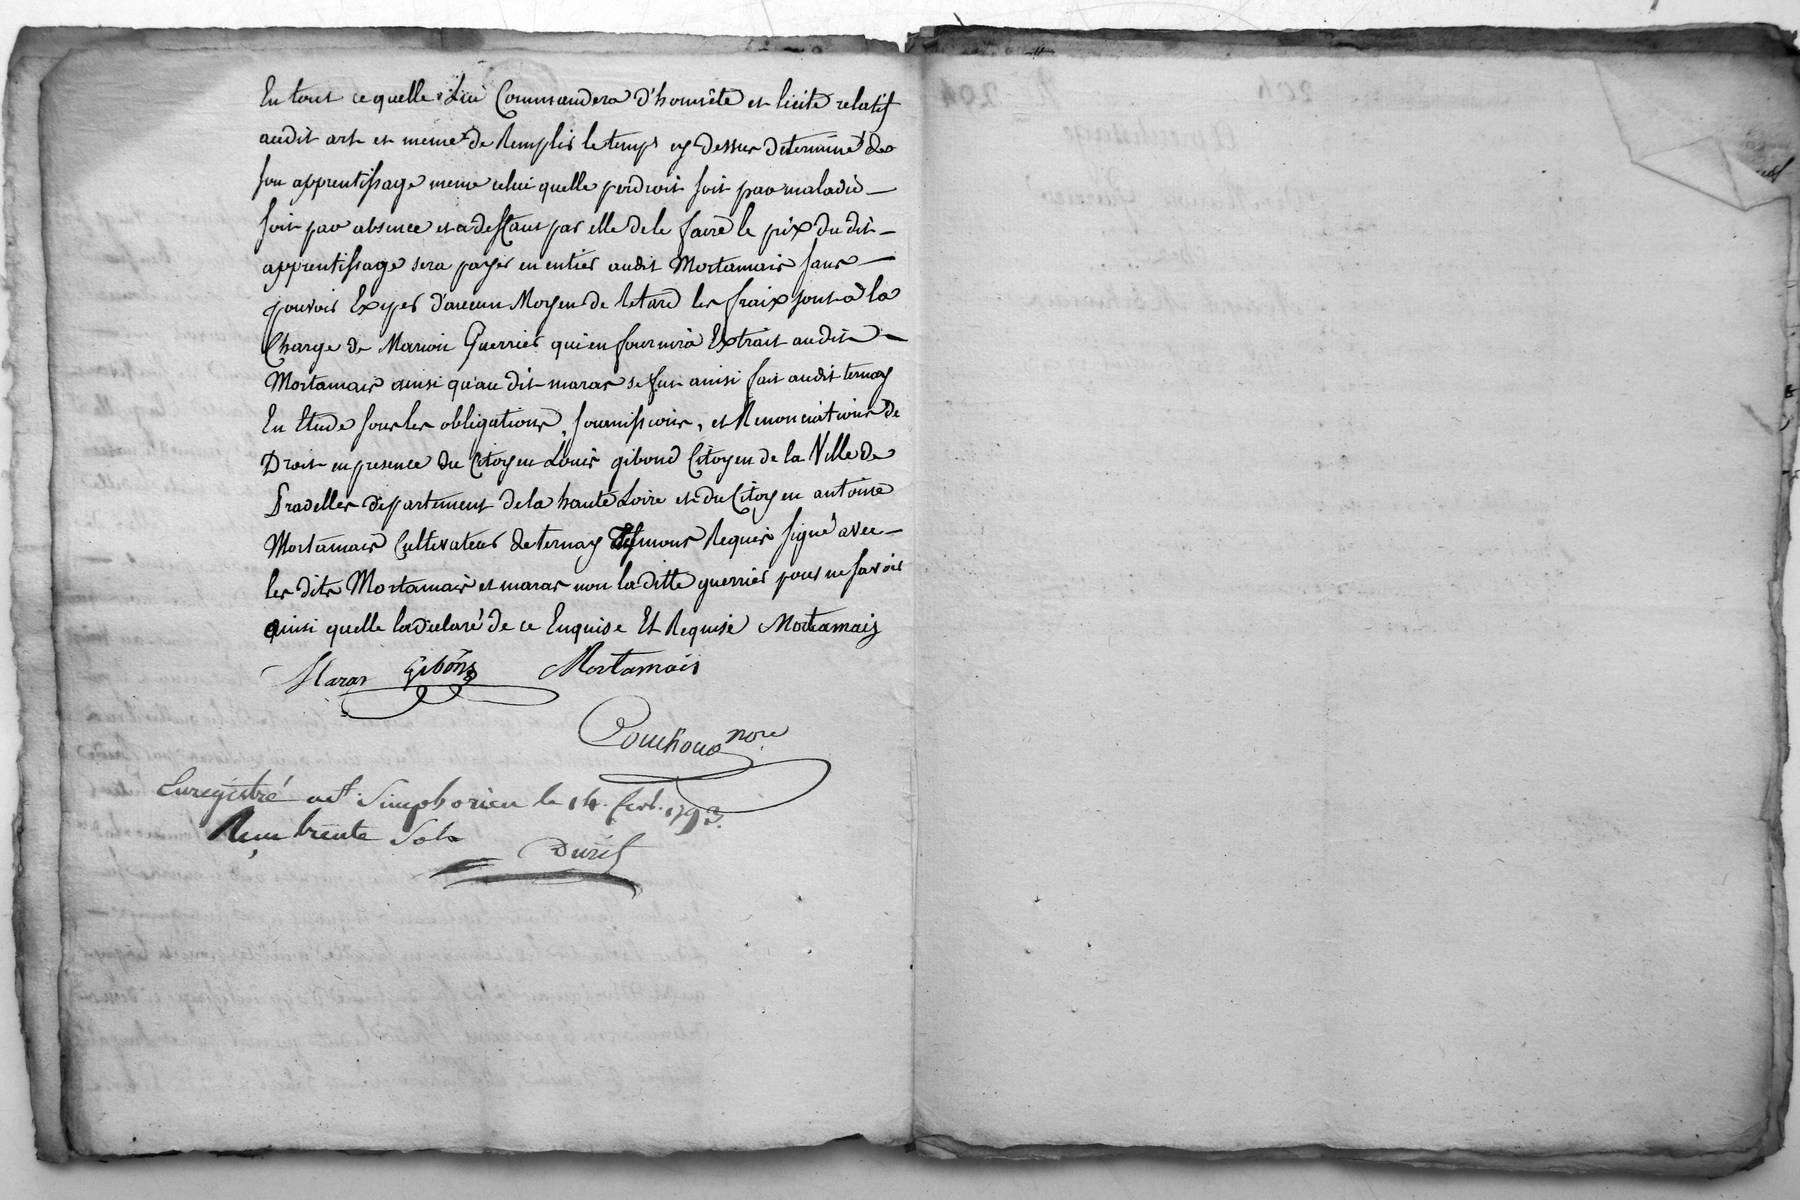 En tout ce quelle lui Commandera d'honnête et licite relatif
audit art et meme de Remplir le temps cy dessus determiné de
son apprentissage meme celui quelle perdroit soit par maladie
soit par absence et a deffaut par elle de le faire le prix du dit
apprentissage sera payer en entier audit Mortamais sans
pouvoir Exyper d'aucun Moyen de Retard les fraix sont à la
Charge de Marion Guerrier qui en fournira Extrait audit
Mortamais ainsi qu'au dit maras se fut ainsi fait audit ternay
En Etude sous les obligations, soumissions, et Renonciations de
Droit en presence du Citoyen Louis gibond Citoyen de la Ville de
Pradelles departement de la haute Loire et du Citoyen antoine
Mortamais Cultivateur de ternay temoins Requis signé avec
les dits Mortamais et maras non la ditte guerrier pour ne savoir
ainsi quelle la declaré de ce Enquise Et Requise Mortamais
Maras Gibon Mortamais
Pouchon nore
Enregistré a St. Simphorien le 14. fevr. 1793.
Reçu trente Sols
Durif